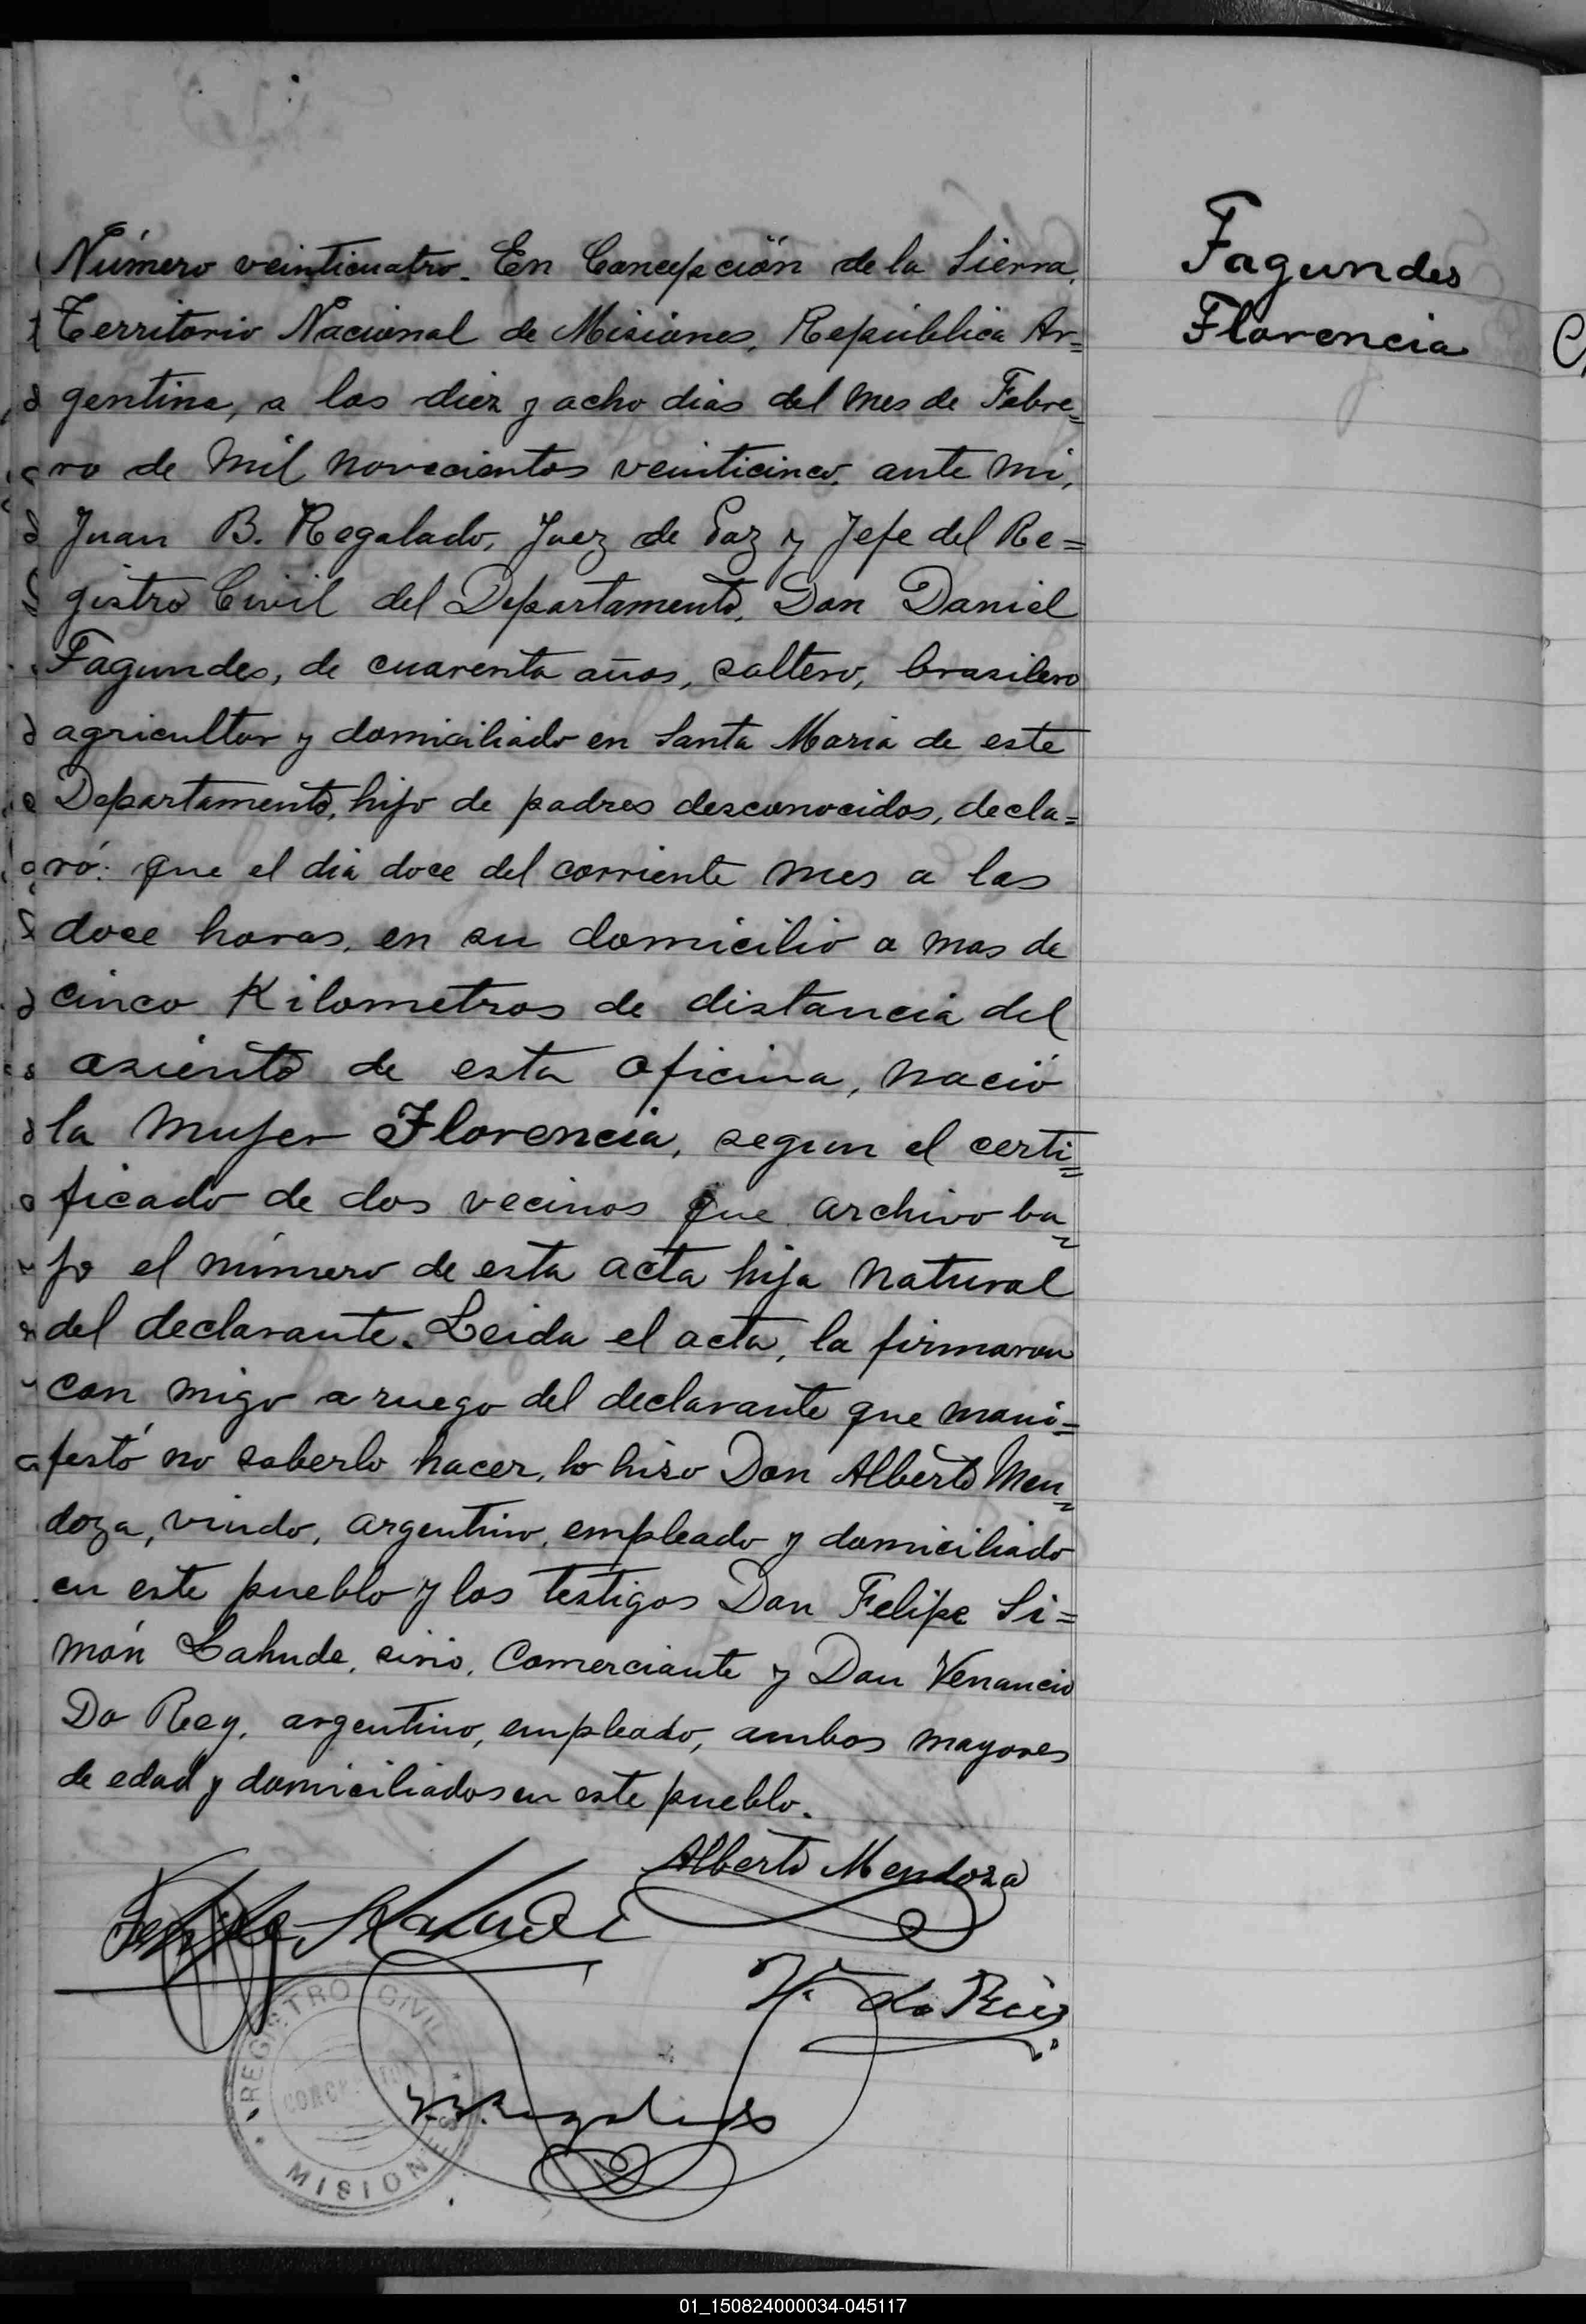 Número veinticuatro. En Concepción de la Sierra,
Territorio Nacional de Misiones, República Ar=
gentina, a los diez y ocho dias del mes de Febre=
ro de mil novecientos veinticinco, ante mi,
Juan B. Regalado, Juez de Paz y Jefe del Re=
gistro Civil del Departamento, Don Daniel
Fagundes, de cuarenta años, soltero, brasilero
agricultor y domiciliado en Santa Maria de este
Departamento, hijo de padres desconocidos, decla=
ró: que el dia doce del corriente mes a las
doce horas, en su domicilio a mas de
cinco Kilometros de distancia del
asiento de esta oficina, nació
la mujer Florencia, segun el certi=
ficado de dos vecinos que archivo ba=
jo el número de esta acta hija natural
del declarante. Leida el acta, la firmaron
con migo a ruego del declarante que mani=
festó no saberlo hacer, lo hizo Don Alberto Men=
doza, viudo, argentino, empleado y domiciliado
en este pueblo y los testigos Don Felipe Si=
món Lahude, sirio, Comerciante y Don Venancio
Do Rey, argentino, empleado, ambos mayores
de edad y domiciliados en este pueblo.
Fagundes
Florencia
Alberto Mendoza
REGISTRO CIVIL
CONCEPCION
MISIONES
01_150824000034-045117